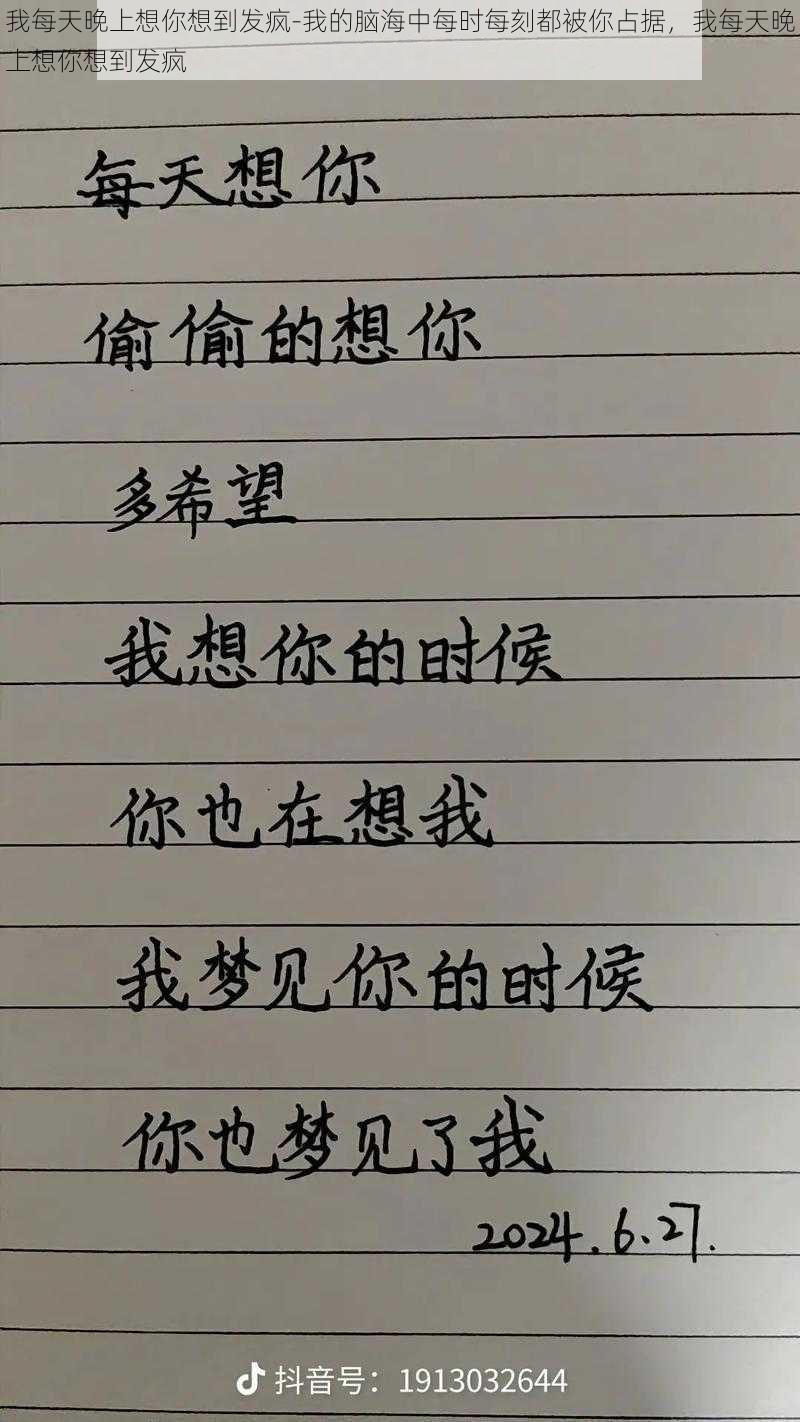 我每天晚上想你想到发疯-我的脑海中每时每刻都被你占据，我每天晚
上想你想到发疯
每天想你
偷偷的想你
多希望
我想你的时候
你也在想我
我梦见你的时候
你也梦见了我
2024.6.27.
抖音号：1913032644